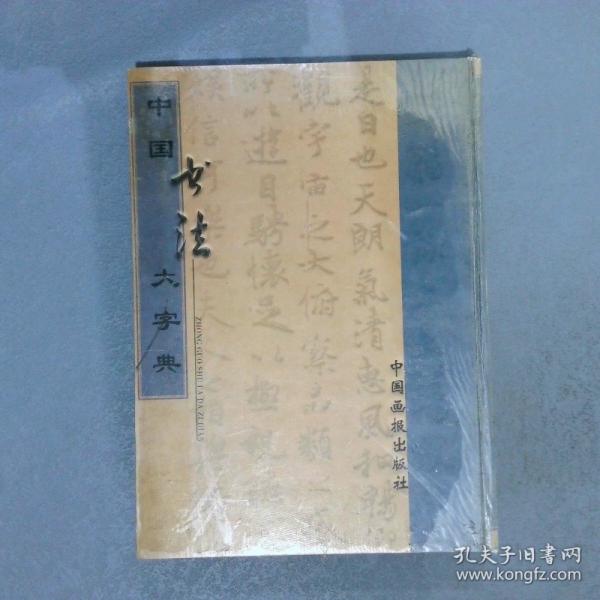 中国
书法
大字典
ZHONG GUO SHU FA DA ZI DIAN
是日也天朗氣清惠風和暢
觀宇宙之大俯察品類之
所以遊目騁懷足以極視聽
中国画报出版社
孔夫子旧书网
www.kongfz.com